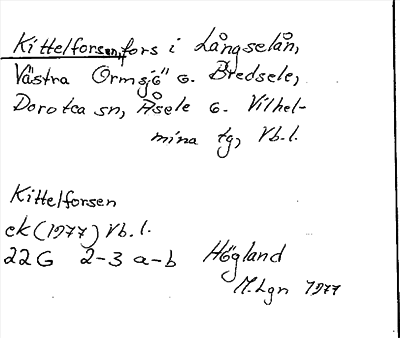 Kittelforsen, fors i Långselån,
Västra Ormsjö o. Bredsele,
Dorotea sn, Åsele o. Vilhel-
mina tg, Vb.l.
Kittelforsen
ek (1977) Vb.l.
22G 2-3 a-b Högland
M.Lgn 1977